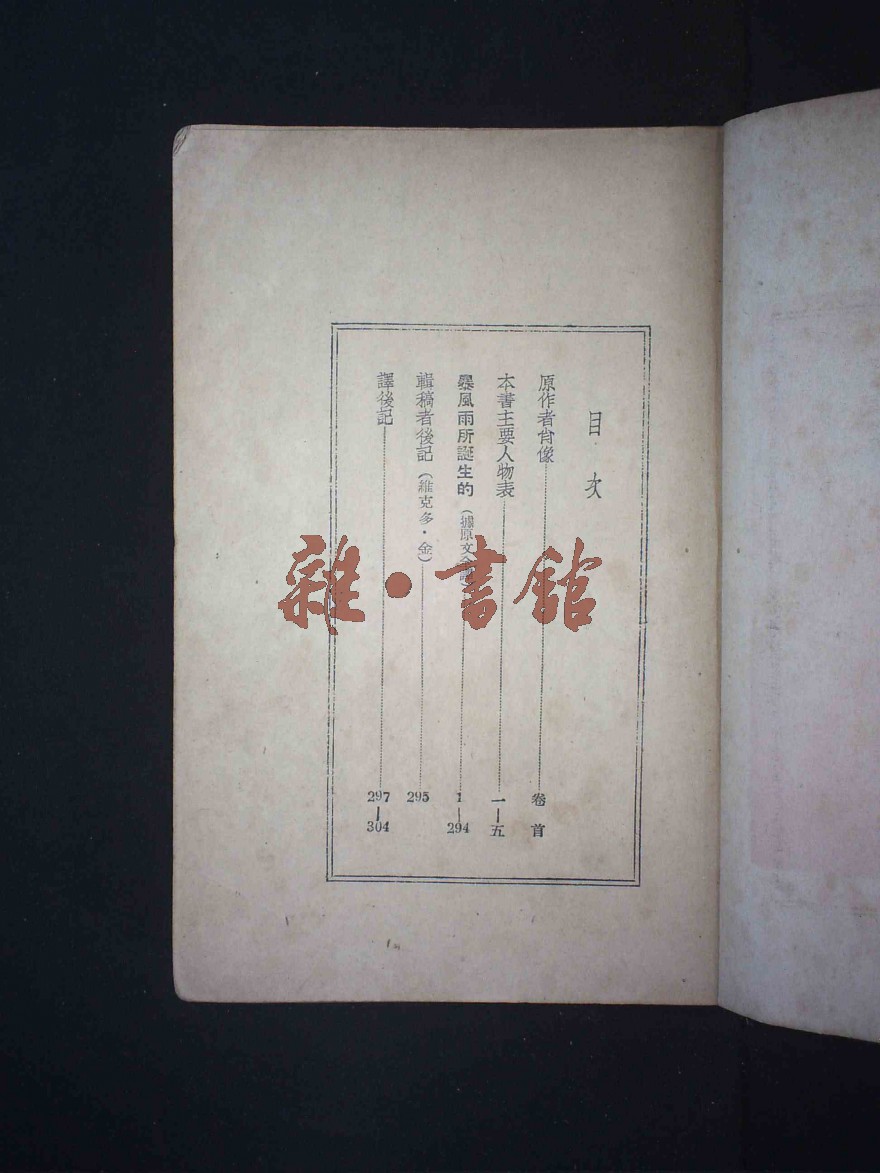 目次
原作者肖像 卷首
本書主要人物表 一—五
暴風雨所誕生的（據原文 1—294
輯稿者後記（維克多·金） 295
譯後記 297—304
雜·書館